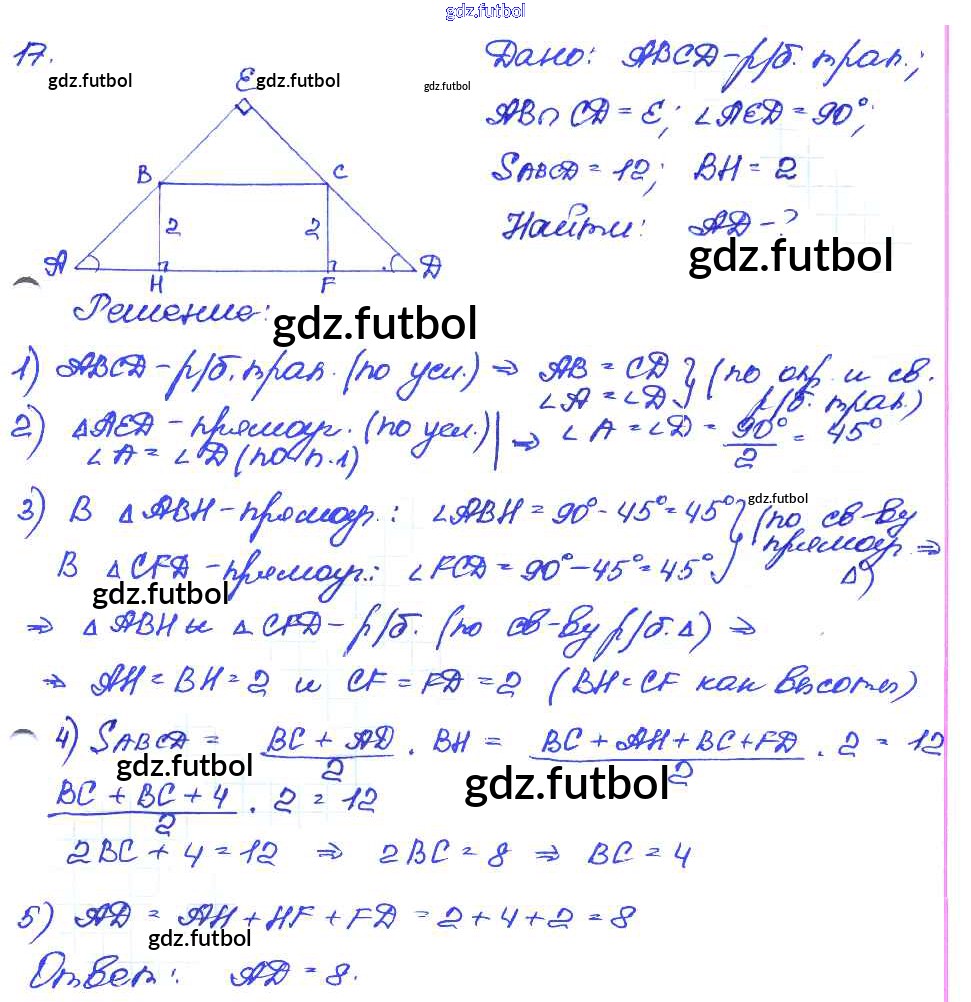 gdz.futbol
17.
gdz.futbol
E
gdz.futbol
gdz.futbol
Дано: ABCD - р/б. трап.;
AB ∩ CD = E; ∠AED = 90°;
SABCD = 12; BH = 2
Найти: AD - ?
gdz.futbol
B C
2 2
A H F D
Решение:
gdz.futbol
1) ABCD - р/б. трап. (по усл.) ⇒ AB = CD } (по опр. и св.
∠A = ∠D } р/б. трап.)
2) △AED - прямоуг. (по усл.) | ⇒ ∠A = ∠D = 90°/2 = 45°
∠A = ∠D (по п.1)
gdz.futbol
3) В △ABH - прямоуг.: ∠ABH = 90° - 45° = 45° } (по св-ву
прямоуг. ⇒
В △CFD - прямоуг.: ∠FCD = 90° - 45° = 45° } △)
gdz.futbol
⇒ △ABH и △CFD - р/б. (по св-ву р/б. △) ⇒
⇒ AH = BH = 2 и CF = FD = 2 (BH = CF как высоты)
4) SABCD = BC + AD / 2 · BH = BC + AH + BC + FD / 2 · 2 = 12
gdz.futbol
gdz.futbol
BC + BC + 4 / 2 · 2 = 12
2BC + 4 = 12 ⇒ 2BC = 8 ⇒ BC = 4
5) AD = AH + HF + FD = 2 + 4 + 2 = 8
gdz.futbol
Ответ: AD = 8.